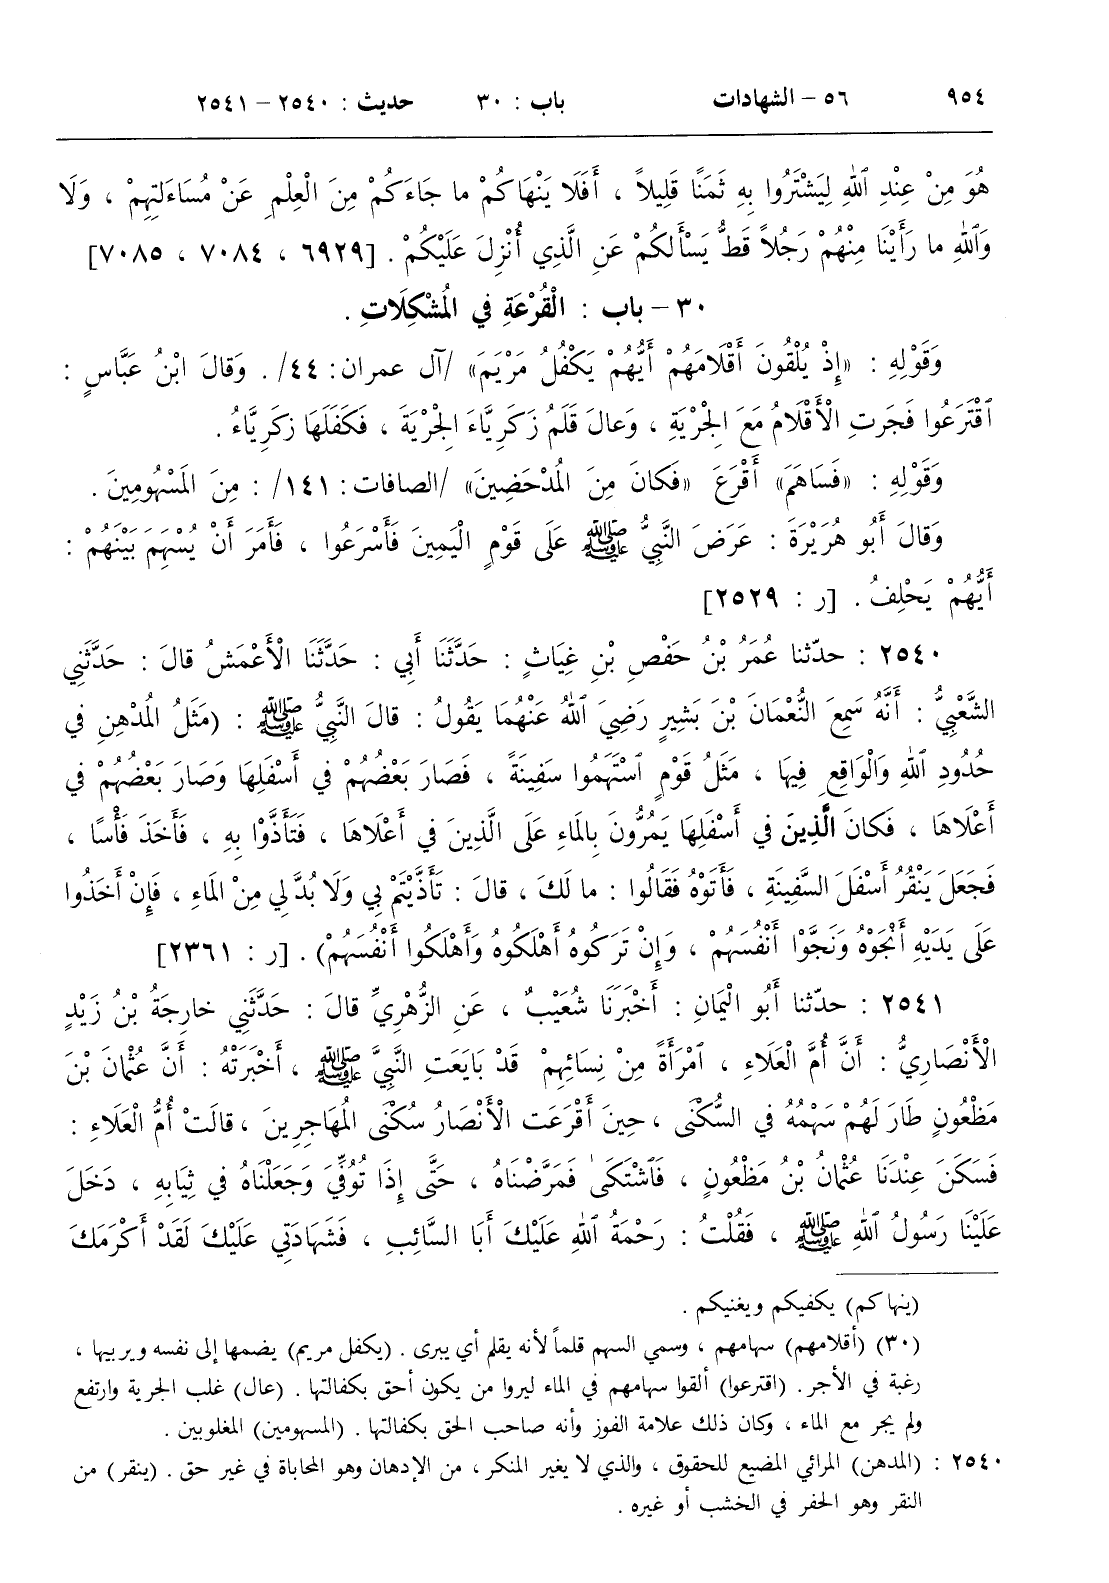 ٩٥٤ ٥٦ – الشهادات باب : ٣٠ حديث : ٢٥٤٠ – ٢٥٤١
هُوَ مِنْ عِنْدِ ٱللهِ لِيَشْتَرُوا بِهِ ثَمَنًا قَلِيلاً ، أَفَلَا يَنْهَاكُمْ ما جَاءَكُمْ مِنَ الْعِلْمِ عَنْ مُسَاءَلَتِهِمْ ، وَلَا
وَٱللهِ ما رَأَيْنَا مِنْهُمْ رَجُلاً قَطُّ يَسْأَلُكُمْ عَنِ الَّذِي أُنْزِلَ عَلَيْكُمْ . [٦٩٢٩ ، ٧٠٨٤ ، ٧٠٨٥]
٣٠ – باب : الْقُرْعَةِ فِي الْمُشْكِلَاتِ .
وَقَوْلِهِ : «إِذْ يُلْقُونَ أَقْلَامَهُمْ أَيُّهُمْ يَكْفُلُ مَرْيَمَ» /آل عمران: ٤٤/ . وَقالَ ابْنُ عَبَّاسٍ :
ٱقْتَرَعُوا فَجَرَتِ الْأَقْلَامُ مَعَ الْجِرْيَةِ ، وَعالَ قَلَمُ زَكَرِيَّاءَ الْجِرْيَةَ ، فَكَفَلَهَا زَكَرِيَّاءُ .
وَقَوْلِهِ : «فَسَاهَمَ» أَقْرَعَ «فَكانَ مِنَ الْمُدْحَضِينَ» /الصافات: ١٤١/ : مِنَ الْمَسْهُومِينَ .
وَقالَ أَبُو هُرَيْرَةَ : عَرَضَ النَّبِيُّ ﷺ عَلَى قَوْمٍ الْيَمِينَ فَأَسْرَعُوا ، فَأَمَرَ أَنْ يُسْهِمَ بَيْنَهُمْ :
أَيُّهُمْ يَحْلِفُ . [ر : ٢٥٢٩]
٢٥٤٠ : حدّثنا عُمَرُ بْنُ حَفْصِ بْنِ غِيَاثٍ : حَدَّثَنَا أَبِي : حَدَّثَنَا الْأَعْمَشُ قالَ : حَدَّثَنِي
الشَّعْبِيُّ : أَنَّهُ سَمِعَ النُّعْمَانَ بْنَ بَشِيرٍ رَضِيَ ٱللهُ عَنْهُمَا يَقُولُ : قالَ النَّبِيُّ ﷺ : (مَثَلُ الْمُدْهِنِ فِي
حُدُودِ ٱللهِ وَالْوَاقِعِ فِيهَا ، مَثَلُ قَوْمٍ ٱسْتَهَمُوا سَفِينَةً ، فَصَارَ بَعْضُهُمْ فِي أَسْفَلِهَا وَصَارَ بَعْضُهُمْ فِي
أَعْلَاهَا ، فَكانَ الَّذِينَ فِي أَسْفَلِهَا يَمُرُّونَ بِالْمَاءِ عَلَى الَّذِينَ فِي أَعْلَاهَا ، فَتَأَذَّوْا بِهِ ، فَأَخَذَ فَأْسًا ،
فَجَعَلَ يَنْقُرُ أَسْفَلَ السَّفِينَةِ ، فَأَتَوْهُ فَقَالُوا : ما لَكَ ، قالَ : تَأَذَّيْتُمْ بِي وَلَا بُدَّ لِي مِنْ الْمَاءِ ، فَإِنْ أَخَذُوا
عَلَى يَدَيْهِ أَنْجَوْهُ وَنَجَّوْا أَنْفُسَهُمْ ، وَإِنْ تَرَكُوهُ أَهْلَكُوهُ وَأَهْلَكُوا أَنْفُسَهُمْ) . [ر : ٢٣٦١]
٢٥٤١ : حدّثنا أَبُو الْيَمَانِ : أَخْبَرَنَا شُعَيْبٌ ، عَنِ الزُّهْرِيِّ قالَ : حَدَّثَنِي خارِجَةُ بْنُ زَيْدٍ
الْأَنْصَارِيُّ : أَنَّ أُمَّ الْعَلَاءِ ، ٱمْرَأَةً مِنْ نِسَائِهِمْ قَدْ بَايَعَتِ النَّبِيَّ ﷺ ، أَخْبَرَتْهُ : أَنَّ عُثْمَانَ بْنَ
مَظْعُونٍ طَارَ لَهُمْ سَهْمُهُ فِي السُّكْنَى ، حِينَ أَقْرَعَتِ الْأَنْصَارُ سُكْنَى الْمُهَاجِرِينَ ، قالَتْ أُمُّ الْعَلَاءِ :
فَسَكَنَ عِنْدَنَا عُثْمَانُ بْنُ مَظْعُونٍ ، فَٱشْتَكَىٰ فَمَرَّضْنَاهُ ، حَتَّى إِذَا تُوُفِّيَ وَجَعَلْنَاهُ فِي ثِيَابِهِ ، دَخَلَ
عَلَيْنَا رَسُولُ ٱللهِ ﷺ ، فَقُلْتُ : رَحْمَةُ ٱللهِ عَلَيْكَ أَبَا السَّائِبِ ، فَشَهَادَتِي عَلَيْكَ لَقَدْ أَكْرَمَكَ
(ينهاكم) يكفيكم ويغنيكم .
(٣٠) (أقلامهم) سهامهم ، وسمي السهم قلماً لأنه يقلم أي يبرى . (يكفل مريم) يضمها إلى نفسه ويربيها ،
رغبة في الأجر . (اقترعوا) ألقوا سهامهم في الماء ليروا من يكون أحق بكفالتها . (عال) غلب الجرية وارتفع
ولم يجر مع الماء ، وكان ذلك علامة الفوز وأنه صاحب الحق بكفالتها . (المسهومين) المغلوبين .
٢٥٤٠ : (المدهن) المرائي المضيع للحقوق ، والذي لا يغير المنكر ، من الإدهان وهو المحاباة في غير حق . (ينقر) من
النقر وهو الحفر في الخشب أو غيره .